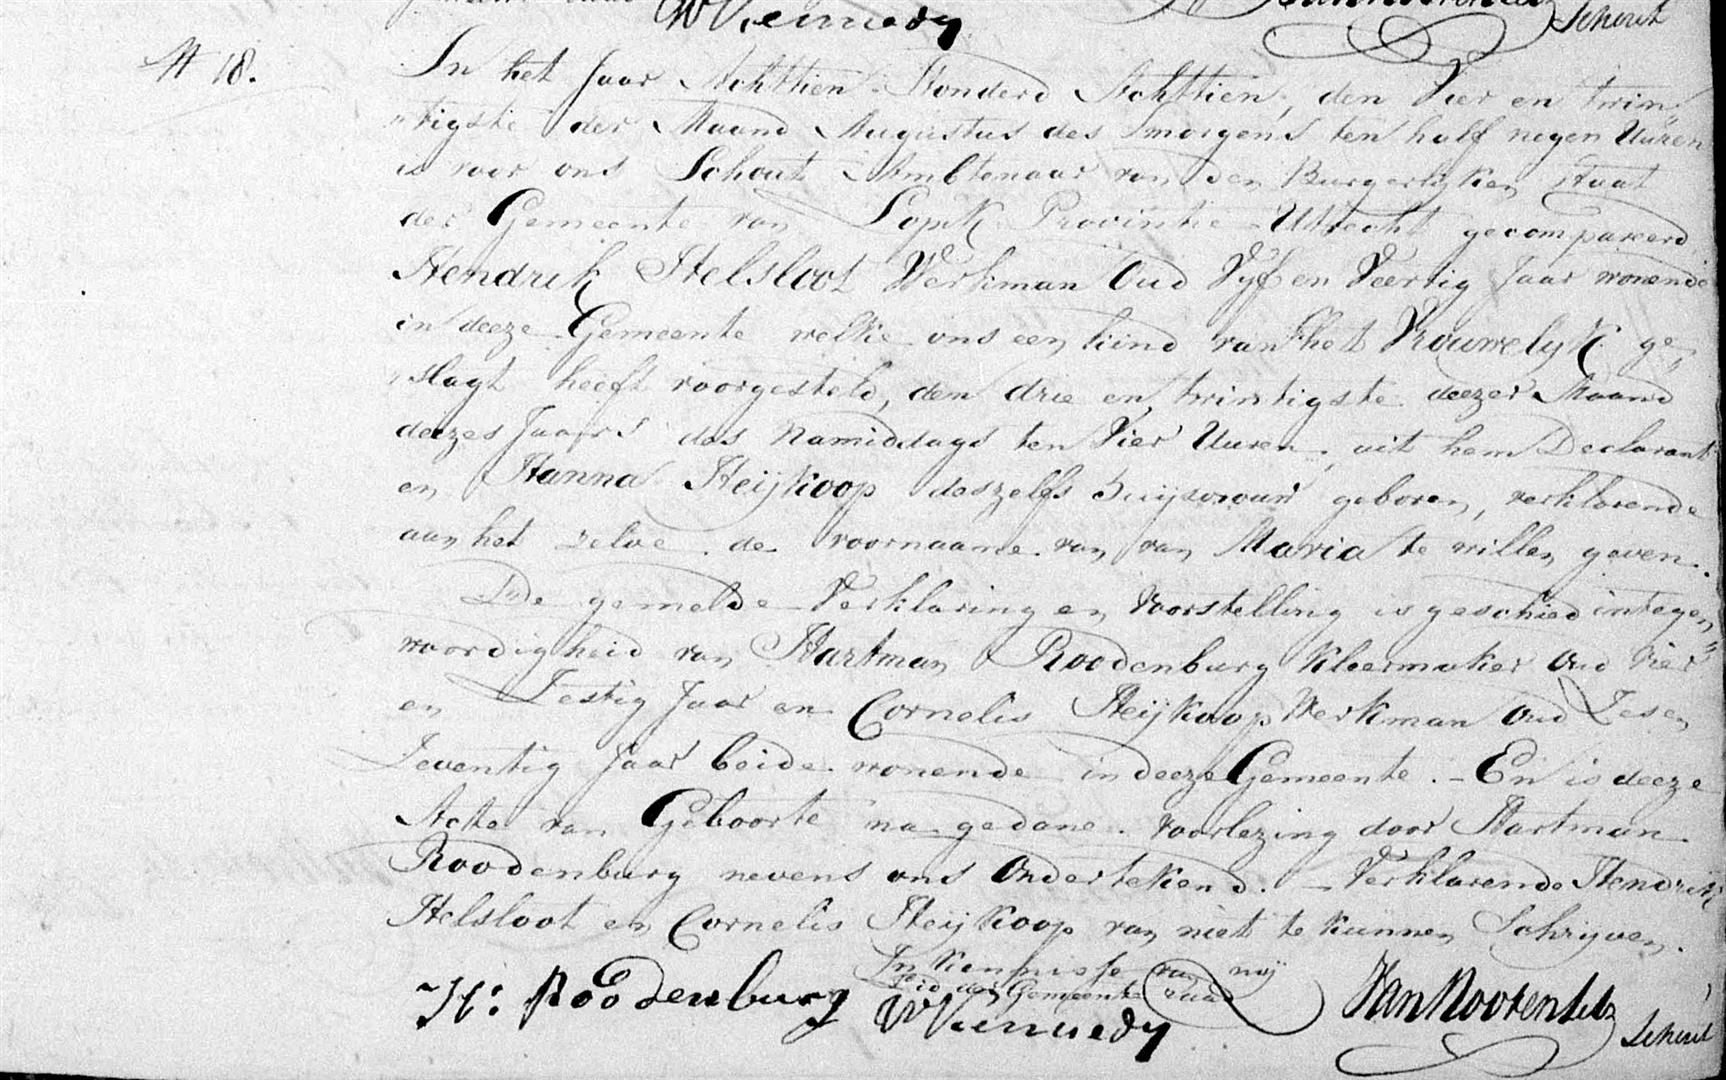 WKennedy Schout
N 18.
In het Jaar Achttien Honderd Achttien, den Vier en twin„
„tigste der Maand Augustus des smorgens ten half negen Uuren
is voor ons Schout Ambtenaar van den Burgerlyken Staat
der Gemeente van Lopik Provintie Utrecht gecompareerd
Hendrik Helsloot Werkman Oud Vyf en Veertig Jaar wonende
in deeze Gemeente welke ons een kind van het Vrouwelyk ge„
„slagt heeft voorgesteld, den drie en twintigste deezer Maand
deezes Jaars des Namiddags ten Vier Uuren, uit hem Declarant
en Hanna Heijkoop deszelfs Huijsvrouw geboren, verklarende
aan het zelve de voornaame van van Maria te willen geven.
De gemelde Verklaring en Voorstelling is geschied in tegen„
woordigheid van Hartman Roodenburg Kleermaker Oud Vier
en Zestig Jaar en Cornelis Heijkoop Werkman Oud Zes en
Zeventig Jaar beide wonende in deeze Gemeente. – En is deeze
Acte van Geboorte na gedane voorlezing door Hartman
Roodenburg nevens ons Ondertekend. – Verklarende Hendrik
Helsloot en Cornelis Heijkoop van niet te kunnen Schrijven.
In kennisse van mij
Lid der Gemeente raad
H: Roodenburg WKennedy Schout